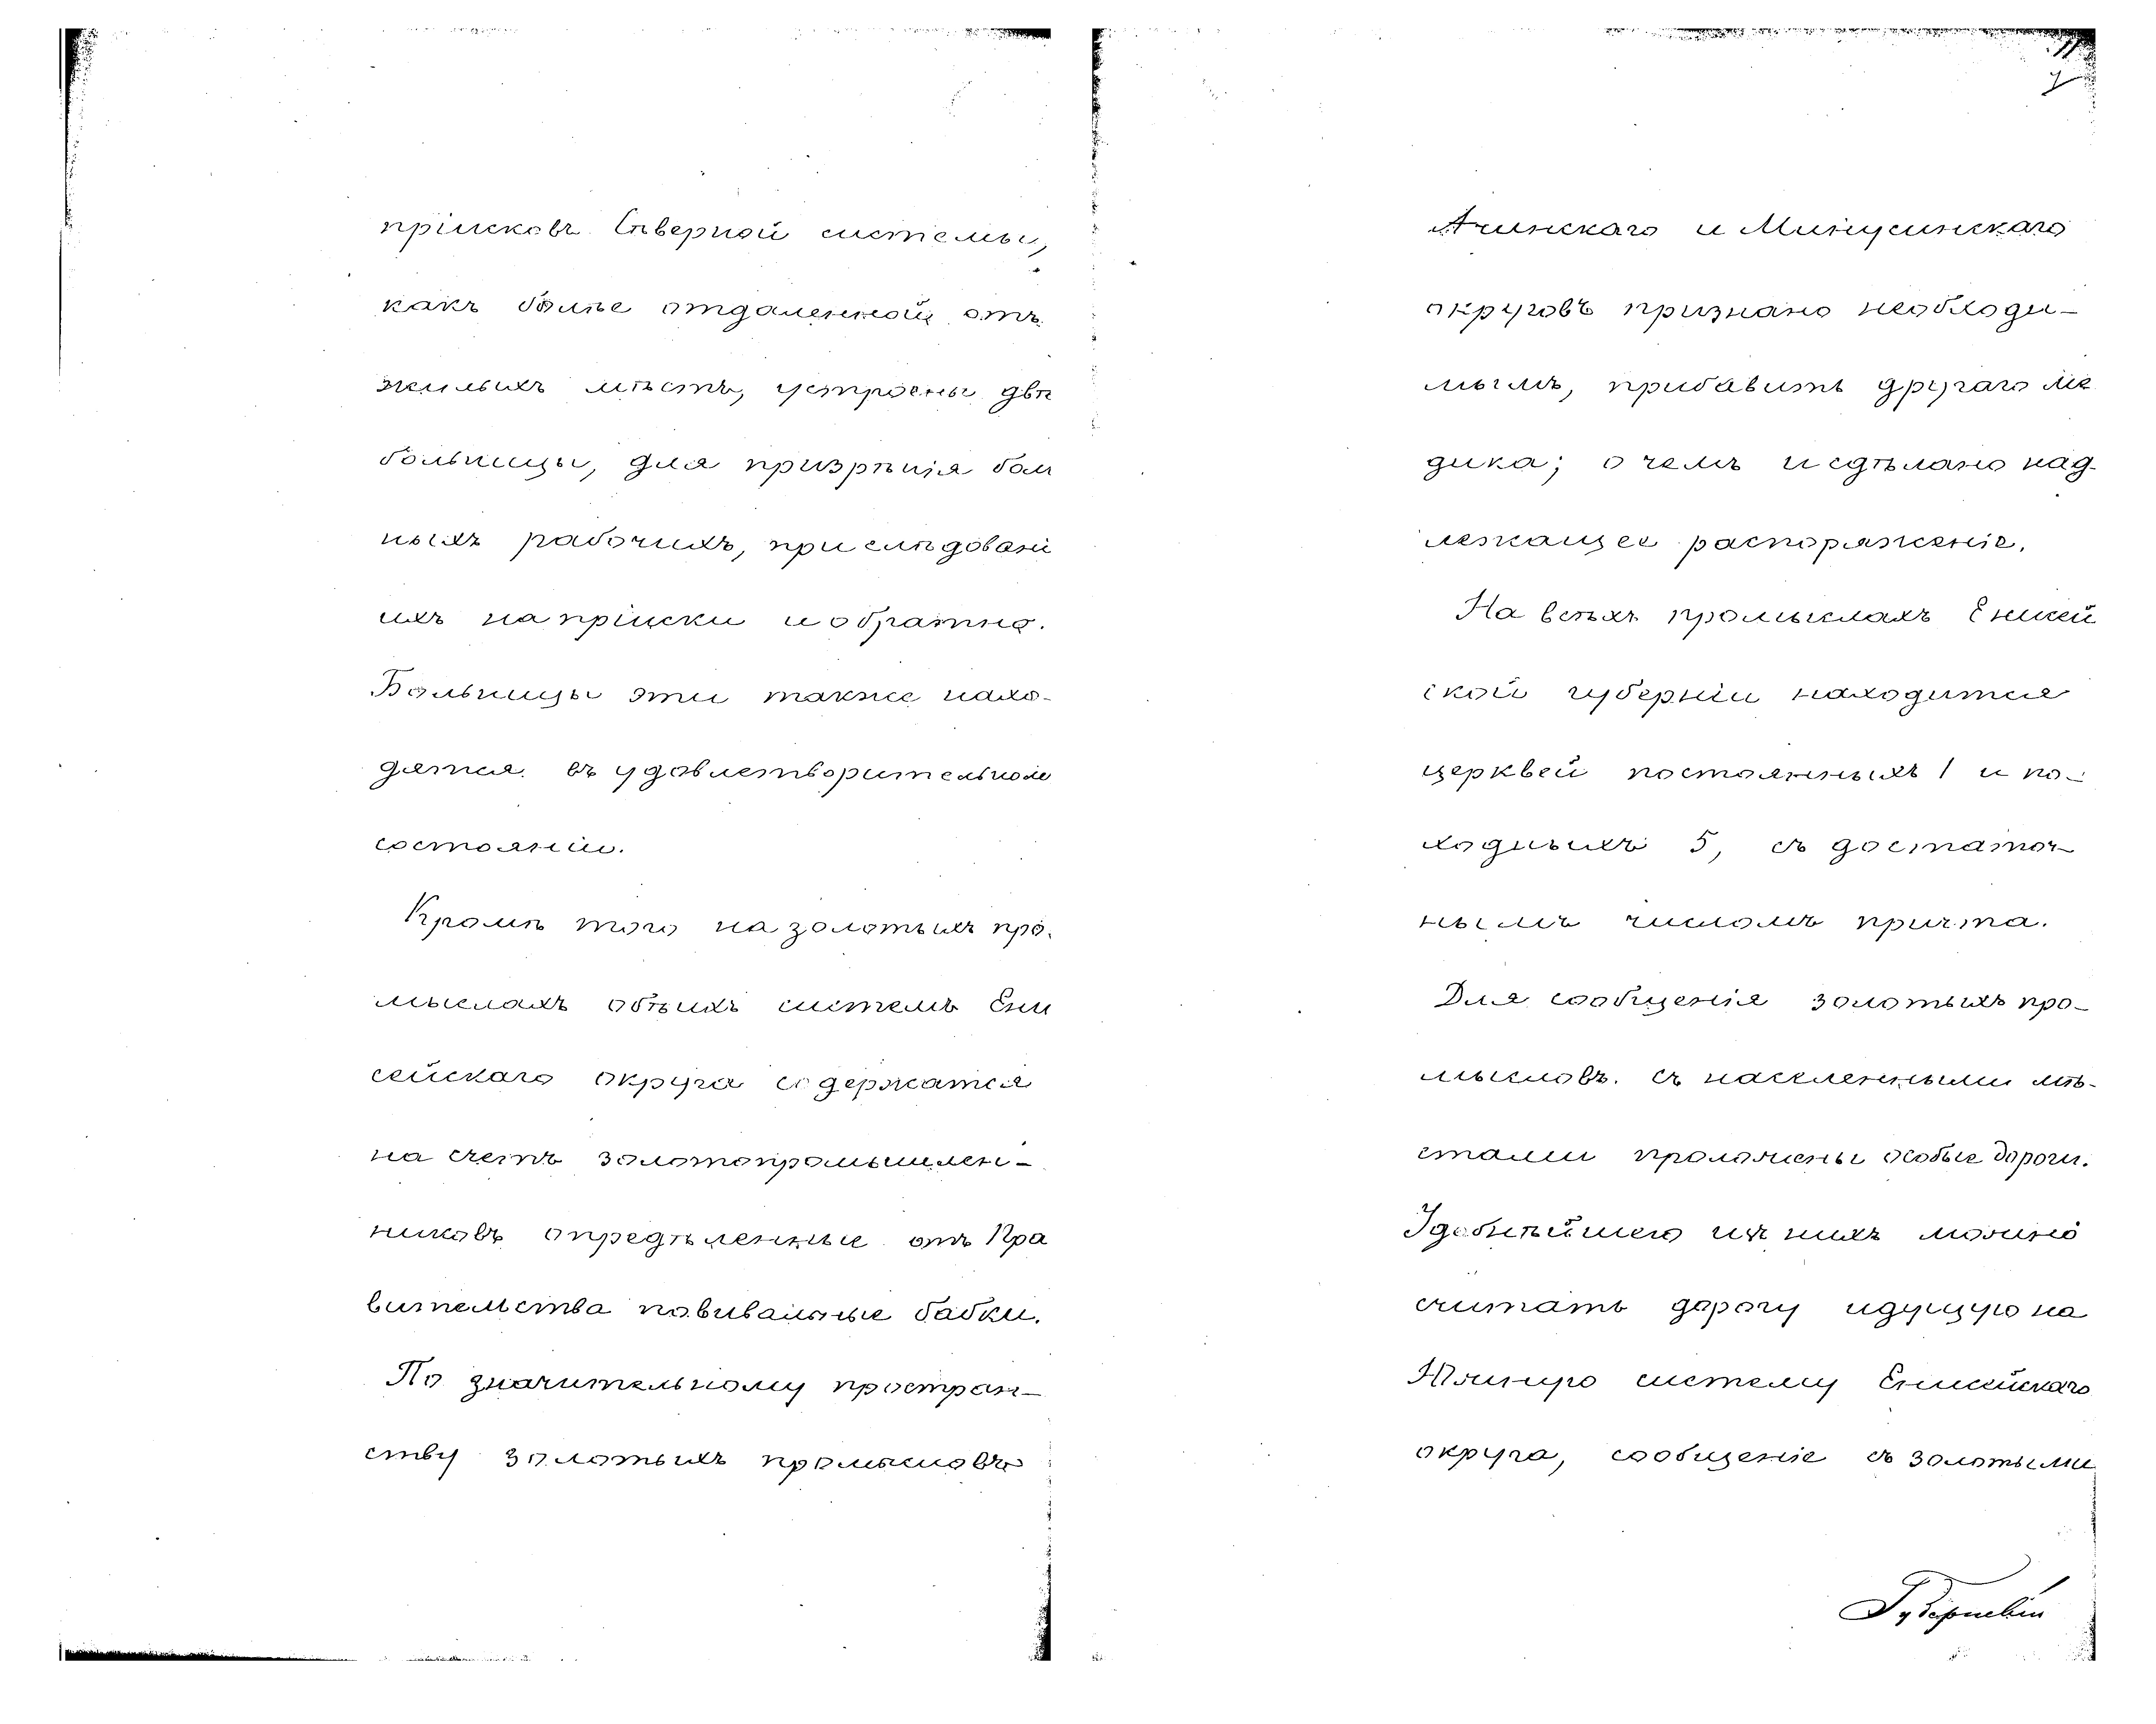 пріисковъ Сѣверной системы,
какъ болѣе отдаленной отъ
жилыхъ мѣстъ, устроены двѣ
больницы, для призрѣнія бол
ныхъ рабочихъ, при слѣдовані
ихъ на пріиски и обратно.
Больницы эти также нахо-
дятся въ удовлетворительном
состояніи.
Кромѣ того на золотыхъ про-
мыслахъ обѣихъ системъ Ени
сейскаго округа содержатся
на счетъ золотопромышлен-
никовъ опредѣленные отъ Пра
вительства повивальные бабки.
По значительному простран-
ству золотыхъ промысловъ
11
7
Ачинскаго и Минусинскаго
округовъ признано необходи-
мымъ, прибавить другаго ме
дика; о чемъ и сдѣлано над-
лежащее распоряженіе.
На всѣхъ промыслахъ Енисей
ской губерніи находится
церквей постоянныхъ 1 и по-
ходныхъ 5, съ достаточ-
нымъ числомъ причта.
Для сообщенія золотыхъ про-
мысловъ съ населенными мѣ-
стами проложены особые дороги.
Удобнѣйшею изъ нихъ можно
считать дорогу идущую на
Южную систему Енисейскаго
округа, сообщеніе съ золотыми